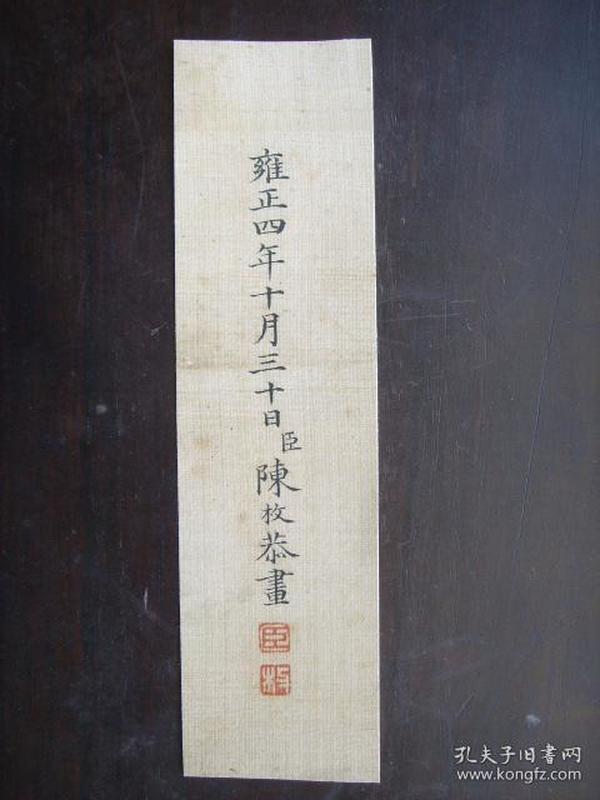 雍正四年十月三十日臣陳枚恭畫
臣
枚
孔夫子旧書网
www.kongfz.com